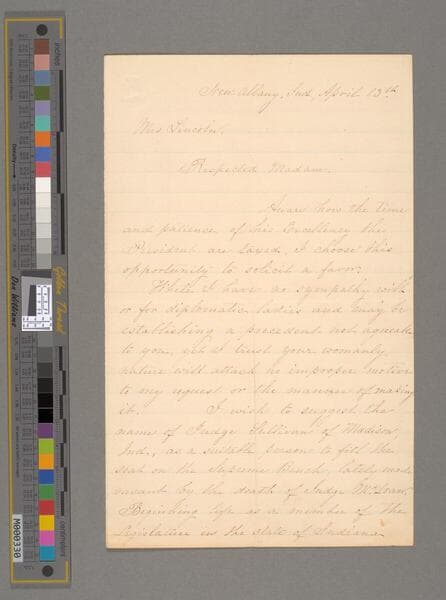 New Albany, Ind, April 13th
Mrs. Lincoln,
Respected Madam.
Aware how the time
and patience of his Excellency the
President are taxed, I choose this
opportunity to solicit a favor.
While I have no sympathy with
or for diplomatic ladies and may be
establishing a precedent not agreeable
to you, yet I trust your womanly
nature will attach no improper motive
to my request or the manner of making
it. I wish to suggest the
name of Judge Sullivan of Madison,
Ind., as a suitable person to fill the
seat on the Supreme Bench, lately made
vacant by the death of Judge McLean.
Beginning life as a member of the
Legislature in the state of Indiana
inches
centimeters
Golden Thread
M000330